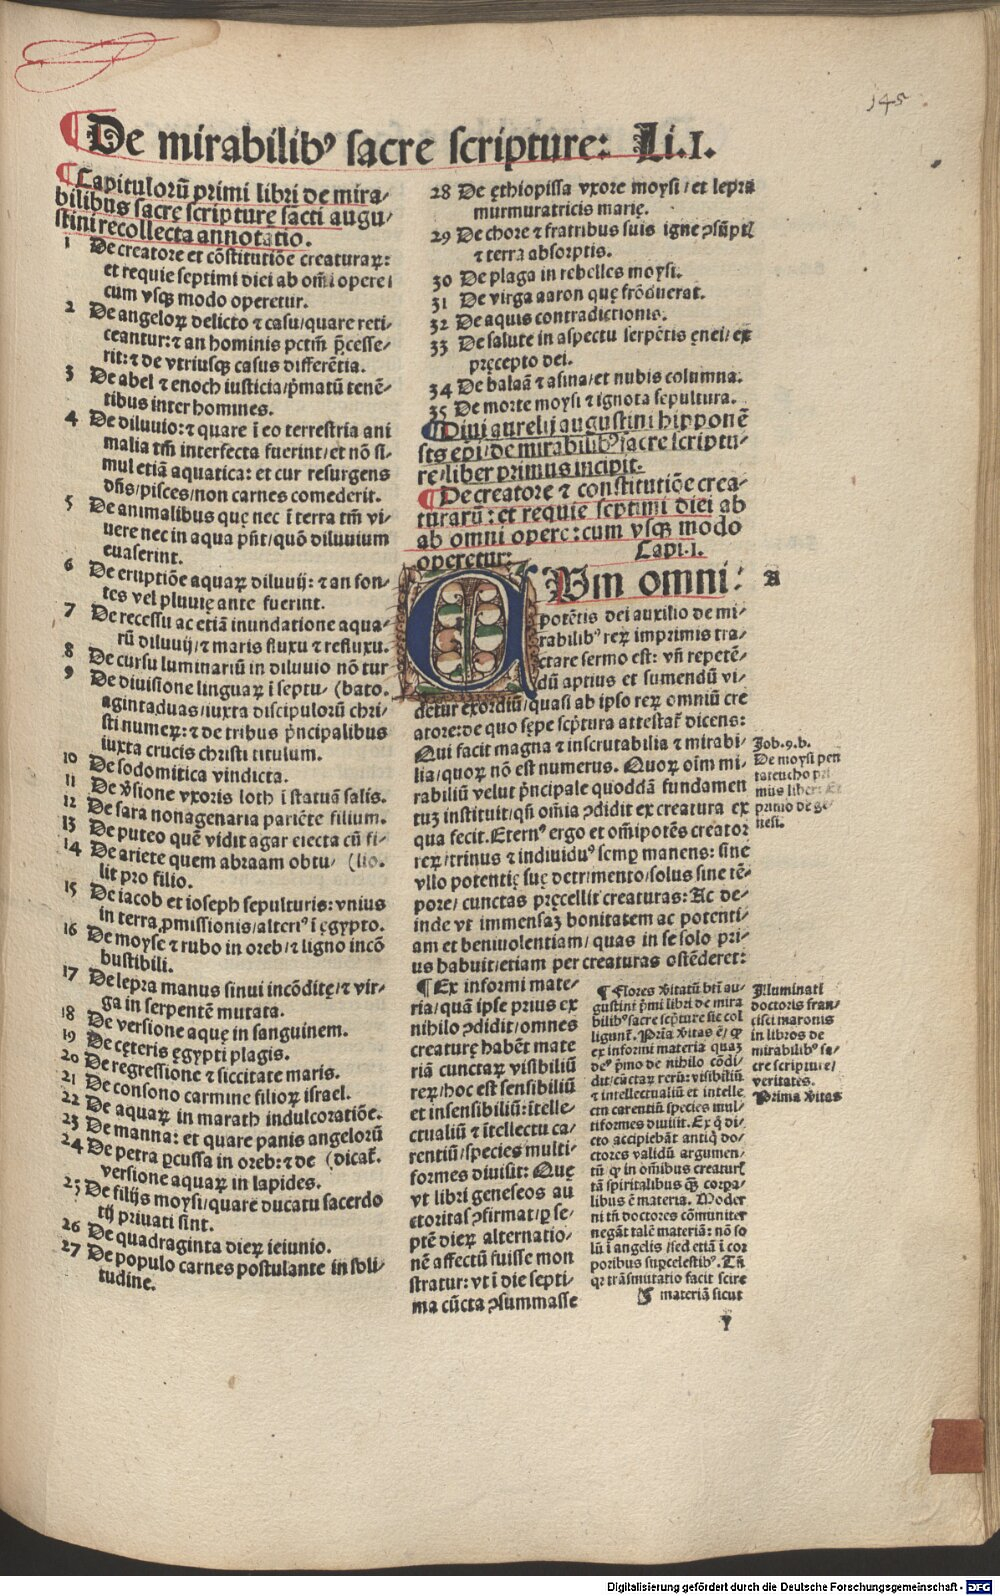 145
De mirabilibꝰ sacre scripture: Li.I.
¶Capitulorū primi libri de mira-
bilibus sacrę scripturę sācti augu/
stini recollecta annotatio.
1 De creatore et cōstitutiōe creaturaꝝ:
et requie septimi diei ab om̄i opere:
cum vsqꝫ modo operetur.
2 De angeloꝝ delicto ⁊ casu/quare reti-
ceantur: ⁊ an hominis pctm̄ p̄cesse-
rit: ⁊ de vtriusqꝫ casus differētia.
3 De abel ⁊ enoch iusticia/p̄matū tenē-
tibus inter homines.
4 De diluuio: ⁊ quare ī eo terrestria ani
malia tm̄ interfecta fuerint/et nō si-
mul etiā aquatica: et cur resurgens
dn̄s/pisces/non carnes comederit.
5 De animalibus quę nec ī terra tm̄ vi-
uere nec in aqua pn̄t/quō diluuium
euaserint.
6 De eruptiōe aquaꝝ diluuij: ⁊ an fon-
tes vel pluuię ante fuerint.
7 De recessu ac etiā inundatione aqua-
rū diluuij/⁊ maris fluxu ⁊ refluxu.
8 De cursu luminariū in diluuio nō tur
9 De diuisione linguaꝝ ī septu/ (bato.
agintaduas/iuxta discipulorū chri-
sti numeꝝ: ⁊ de tribus p̄ncipalibus
iuxta crucis christi titulum.
10 De sodomitica vindicta.
11 De v̄sione vxoris loth ī statuā salis.
12 De sara nonagenaria pariēte filium.
13 De puteo quē vidit agar eiecta cū fi-
14 De ariete quem abraam obtu/ (lio.
lit pro filio.
15 De iacob et ioseph sepulturis: vnius
in terra ꝓmissionis/alteriꝰ ī ęgypto.
16 De moyse ⁊ rubo in oreb/⁊ ligno incō
bustibili.
17 De lepra manus sinui incōditę/⁊ vir-
ga in serpentē mutata.
18 De versione aquę in sanguinem.
19 De cęteris ęgypti plagis.
20 De regressione ⁊ siccitate maris.
21 De consono carmine filioꝝ israel.
22 De aquaꝝ in marath indulcoratiōe.
23 De manna: et quare panis angelorū
24 De petra ꝑcussa in oreb: ⁊ de (dicat̄.
versione aquaꝝ in lapides.
25 De filijs moysi/quare ducatu sacerdo
tij priuati sint.
26 De quadraginta dieꝝ ieiunio.
27 De populo carnes postulante in soli-
tudine.
28 De ęthiopissa vxore moysi/et lepra
murmuratricis marię.
29 De chore ⁊ fratribus suis igne ꝯsūptꝭ
⁊ terra absorptis.
30 De plaga in rebelles moysi.
31 De virga aaron quę frōduerat.
32 De aquis contradictionis.
33 De salute in aspectu serpētis ęnei/ex
pręcepto dei.
34 De balaā ⁊ asina/et nubis columna.
35 De morte moysi ⁊ ignota sepultura.
¶Diui aurelij augustini hipponē
sis epi/de mirabilibꝰ sacre scriptu-
re/liber primus incipit.
¶De creatore ⁊ constitutiōe crea-
turarū: et requie septimi diei ab
ab omni opere: cum vsqꝫ modo
operetur. Capi.I.
CVm omni: A
potētis dei auxilio de mi-
rabilibꝰ reꝝ imprimis tra-
ctare sermo est: vn̄ repetē-
dū aptius et sumendū vi-
detur exordiū/quasi ab ipso reꝝ omniū cre
atore: de quo sępe scp̄tura attestat̄ dicens:
Qui facit magna ⁊ inscrutabilia ⁊ mirabi-
lia/quoꝝ nō est numerus. Quoꝝ oīm mi-
rabiliū velut p̄ncipale quoddā fundamen
tuꝫ instituit/qn̄ om̄ia ꝯdidit ex creatura ex
qua fecit. Eternꝰ ergo et om̄ipotēs creator
reꝝ/trinus ⁊ indiuiduꝰ semꝑ manens: sine
vllo potentię suę detrimento/solus sine tē-
pore/cunctas pręcellit creaturas: Ac de-
inde vt immensaꝫ bonitatem ac potenti-
am et beniuolentiam/quas in se solo pri-
us habuit/etiam per creaturas ostēderet:
¶Ex informi mate-
ria/quā ipse prius ex
nihilo ꝯdidit/omnes
creaturę habēt mate
riā cunctaꝝ visibiliū
reꝝ/hoc est sensibiliū
et insensibiliū: ītelle-
ctualiū ⁊ ītellectu ca-
rentiū/species multi-
formes diuisit: Quę
vt libri geneseos au
ctoritas ꝯfirmat/ꝑ se-
ptē dieꝝ alternatio-
nē affectū fuisse mon
stratur: vt ī die septi-
ma cūcta ꝯsummasse
Job.9.b.
De moysi pen
tateucho pri
mus liber: Et
primo de ge-
nesi.
¶Flores v̄itatū bt̄i au-
gustini p̄mi libri de mira
bilibꝰ sacre scp̄ture sic col
ligunt̄. Pria v̄itas ē/ ꝙ
ex informi materia quaꝫ
deꝰ p̄mo de nihilo cōdi-
dit/cūctaꝝ rerū: visibiliū
⁊ intellectualiū et intelle
ctu carentiū species mul-
tiformes diuisit. Ex q̄ di-
cto accipiebāt antiq̄ do-
ctores validū argumen-
tū ꝙ in om̄ibus creaturꝭ
tā spiritalibus qꝫ corpa-
libus ē materia. Moder
ni tn̄ doctores cōmuniter
negāt talē materiā: nō so
lū ī angelis/sed etiā ī cor
poribus supcelestibꝰ. Tn̄
qꝛ trāsmutatio facit scire
materiā sicut
Illuminati
doctoris fran/
cisci maronis
in libros de
mirabilibꝰ sa-
cre scripture/
veritates.
Prima v̄itas
y
Digitalisierung gefördert durch die Deutsche Forschungsgemeinschaft - DFG